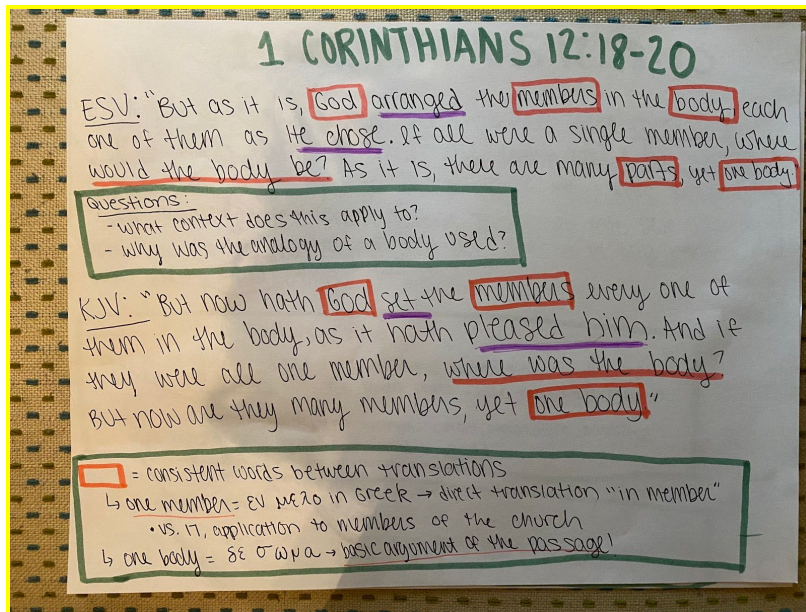 1 CORINTHIANS 12:18-20
ESV: "But as it is, God arranged the members in the body, each
one of them as He chose. If all were a single member, where
would the body be? As it is, there are many parts, yet one body.
Questions:
- what context does this apply to?
- why was the analogy of a body used?
KJV: "But now hath God set the members every one of
them in the body, as it hath pleased him. And if
they were all one member, where was the body?
But now are they many members, yet one body"
= consistent words between translations
↳ one member = εν μελο in Greek → direct translation "in member"
• vs. 17, application to members of the church
↳ one body = δε σωμα → basic argument of the passage!